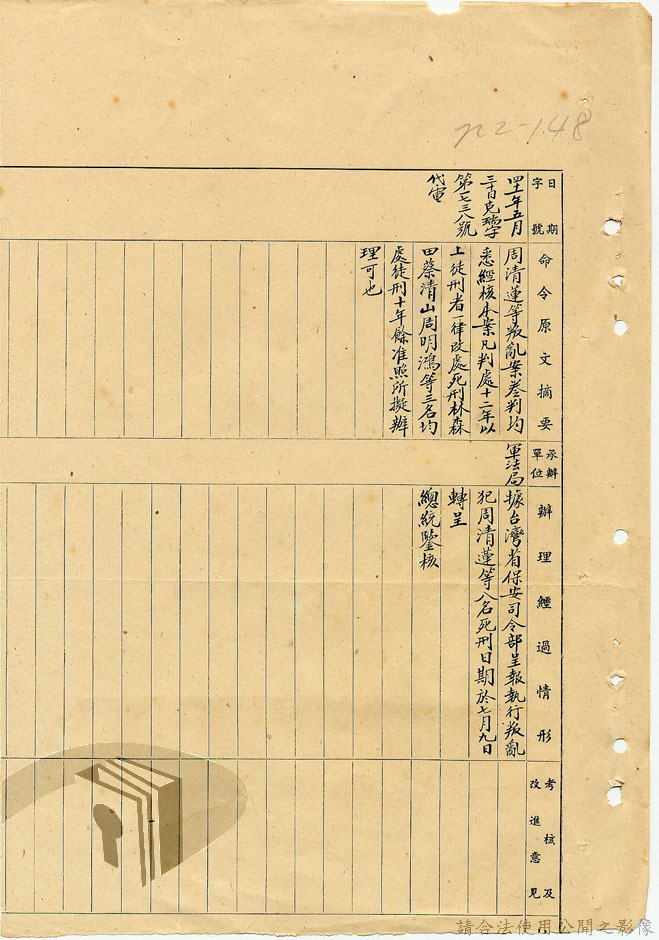 n2-148
日期
字號
四一年五月
三十日克瑞字
第一七三八號
代電
命令原文摘要
周清蓮等叛亂案卷判均
悉經核本案凡判處十二年以
上徒刑者一律改處死刑林森
田蔡清山周明鴻等三名均
處徒刑十年餘准照所擬辦
理可也
承辦
單位
軍法局
辦理經過情形
據台灣省保安司令部呈報執行叛亂
犯周清蓮等八名死刑日期於七月九日
轉呈
總統鑒核
考核及
改進意見
請合法使用公開之影像